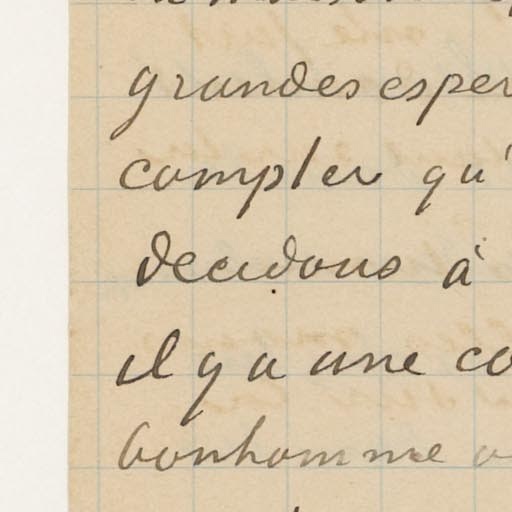 grandes esper
compter qu'
decidons à
il y a une co
bonhomme